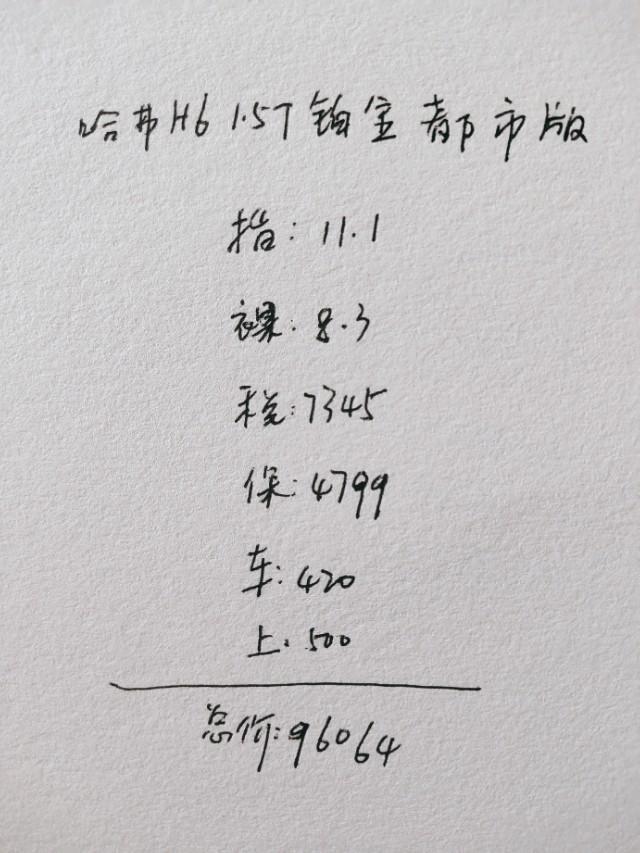 哈弗H6 1.5T铂金都市版
指:11.1
裸:8.3
税:7345
保:4799
车:420
上:500
总价:96064